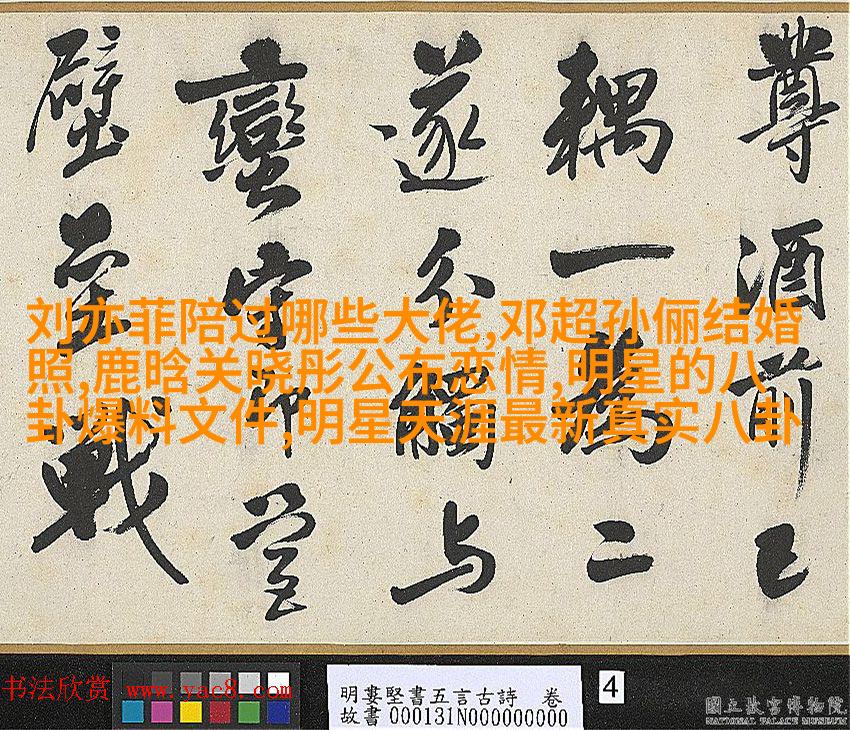 尊酒前已
耦一為二
遂分觸与
蠻守即營
壁壘戰
刘亦菲陪过哪些大佬,邓超孙俪结婚
照,鹿晗关晓彤公布恋情,明星的八
卦爆料文件,明星天涯最新真实八卦
书法欣赏 www.yac8.com
明婁堅書五言古詩 卷
故書000131N000000000
4
國立故宮博物院
NATIONAL PALACE MUSEUM